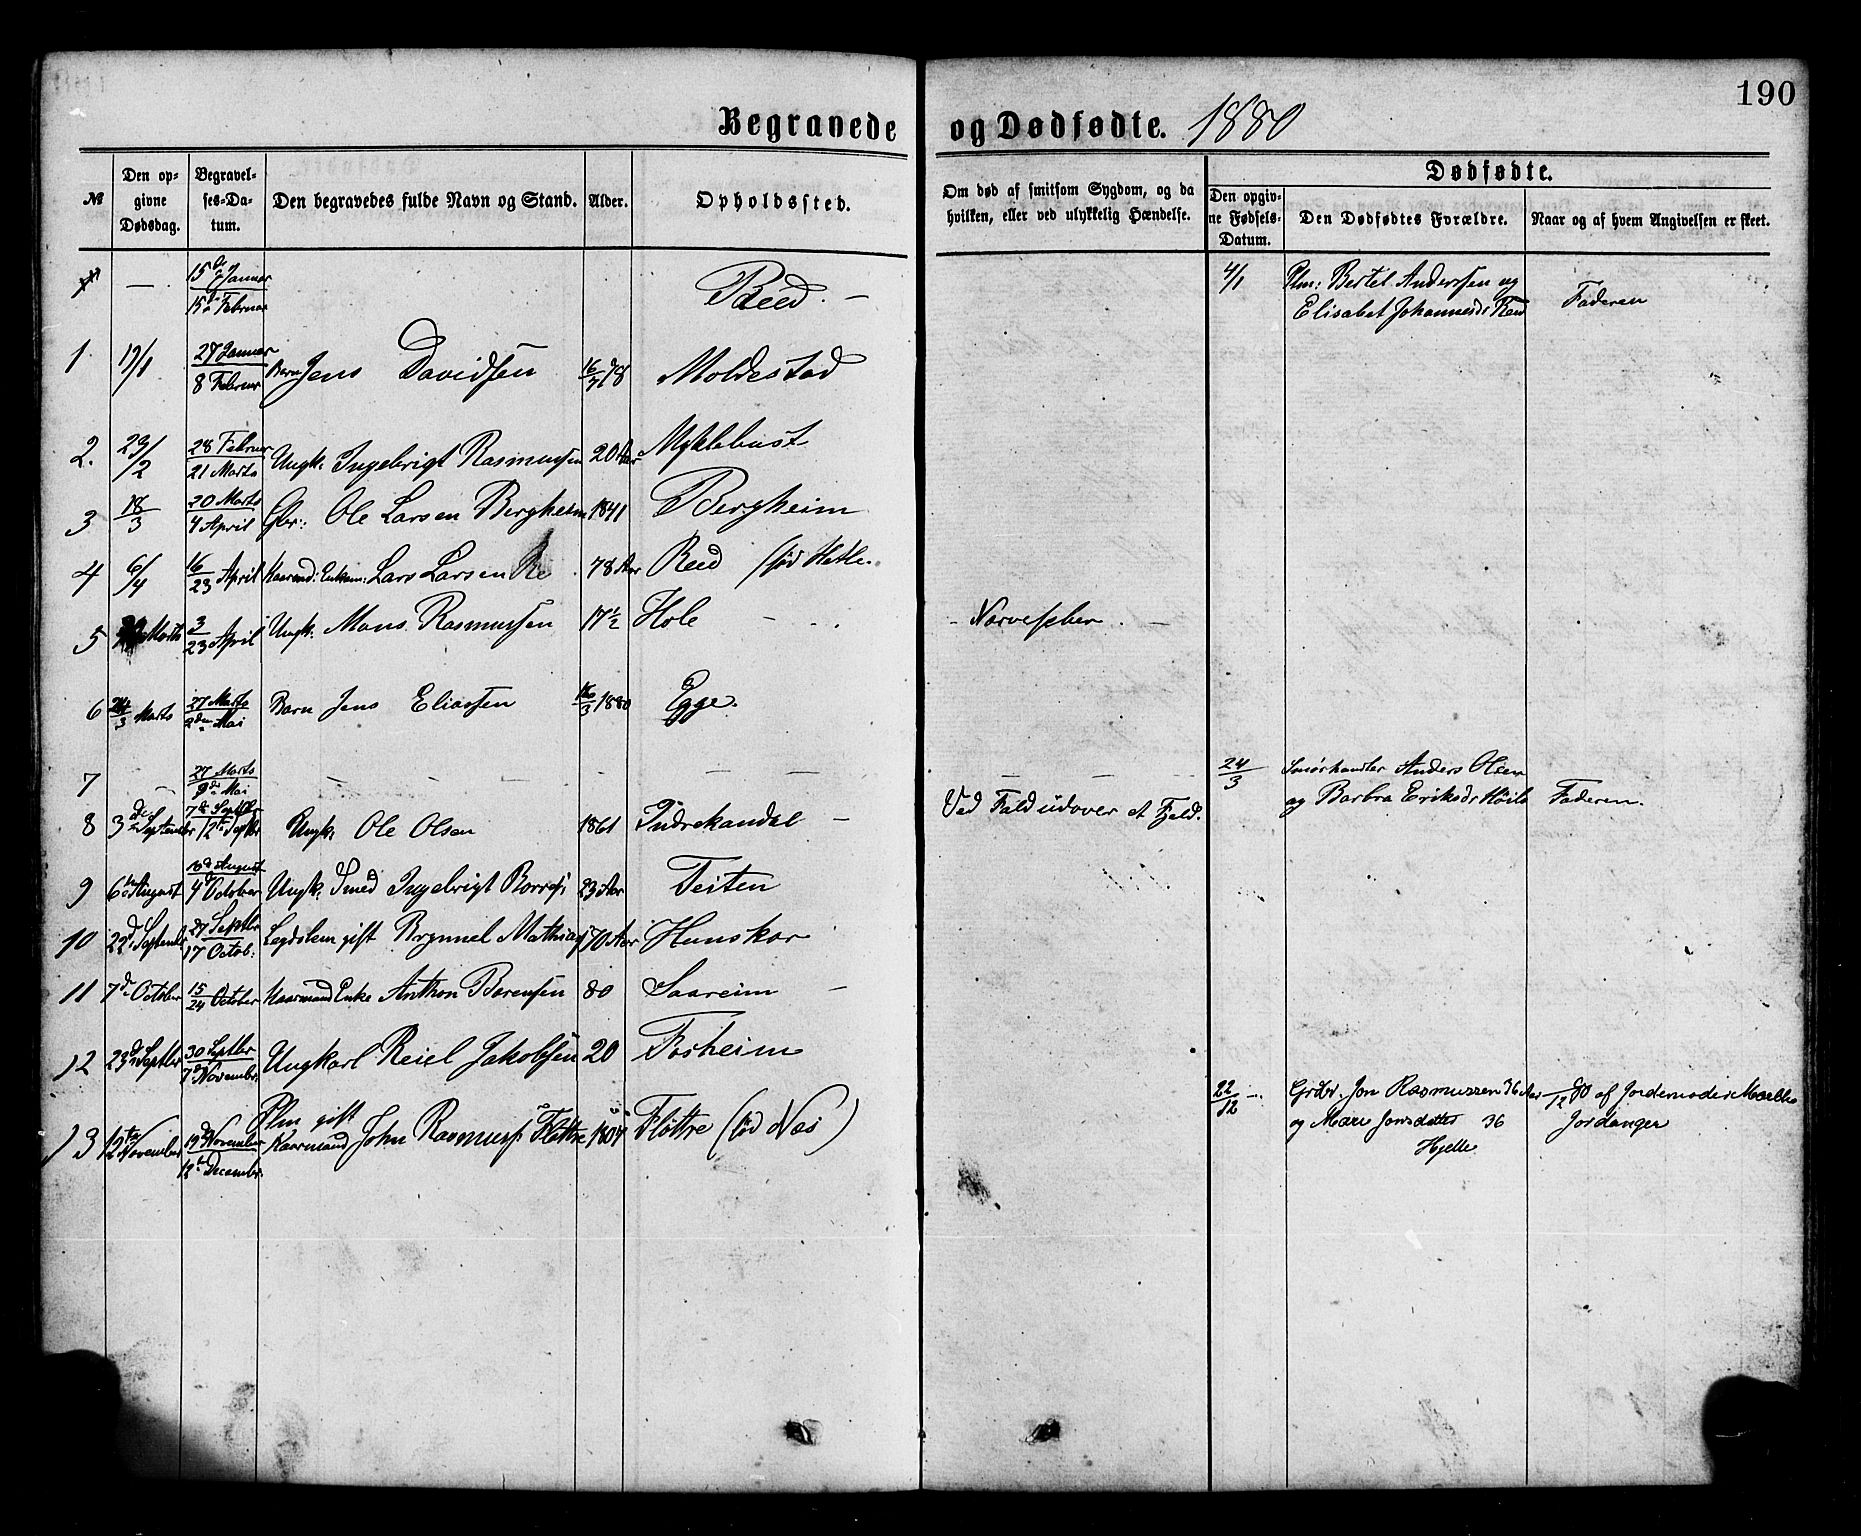 190
Begravede og Dødfødte. 1880
№
Den opgivne Dødsdag.
Begravelses-Datum.
Den begravedes fulde Navn og Stand.
Alder.
Opholdssted.
Om død af smitsom Sygdom, og da hvilken, eller ved ulykkelig Hændelse.
Dødfødte.
Den opgivne Fødsels-Datum.
Den Dødfødtes Forældre.
Naar og af hvem Angivelsen er skeet.
— 15de Januar Reed. — 4/1 Plm: Bertel Anderssen og
15de Februar Elisabet Johannesdr Reed Faderen
1 17/1 27 Januar Barn Jens Davidsen 16/7 78 Moldestad
8 Februar
2. 23/2 28 Februar Ungk: Ingebrigt Rasmussen 20 Aar Myklebust
21 Marts
3 18/3 20 Marts Gbr: Ole Larsen Bergheim 1841 Bergheim
4 April
4 6/4 16/23 April Kaarmd: Enkem: Lars Larsen Re 78 Aar Reed (fød Hetle
5 Marts 3/23 April Ungk: Mons Rasmussen 17½ Hole — - Nervefeber. —
6 24/3 Marts 27 Marts Barn Jens Eliassen 16/3 1880 Egge.
2den Mai
7 — 27 Marts — — — — — — 24/3 Smørhandler Anders Olsen
9de Mai og Barbra Eriksdr Høilo Faderen.
8 3de September 7de Septbr Ungk: Ole Olsen 1861 Indrekandal — Ved Fald udover et Fjeld.
12te Septbr
9 6te August 10de August Ungk: Smed Ingebrigt Borres: 23 Aar Teiten
4de October
10 22de September 27 Septbr Legdslem gift Brynnel Mathias 70 Aar Hunskor
17 Octob:
11 7de October 15/24 October Kaarmand Enke Anthon Børensen 80 Saareim —
12 23de Septbr 30 Septbr Ungkarl Reiel Jakobsen 20 Fosheim
7de Novembr:
22/12 —. Grdbr. Jon Rasmussen 36 Aar /12 80 af Jordemoder
og Mari Jonsdatter 36 Jordanger
Hjelle
Plm gift
13 12te November 19de November Kaarmand John Rasmuss: Fløttre 1804 Fløttre (fød Nos)
12te Decembr.